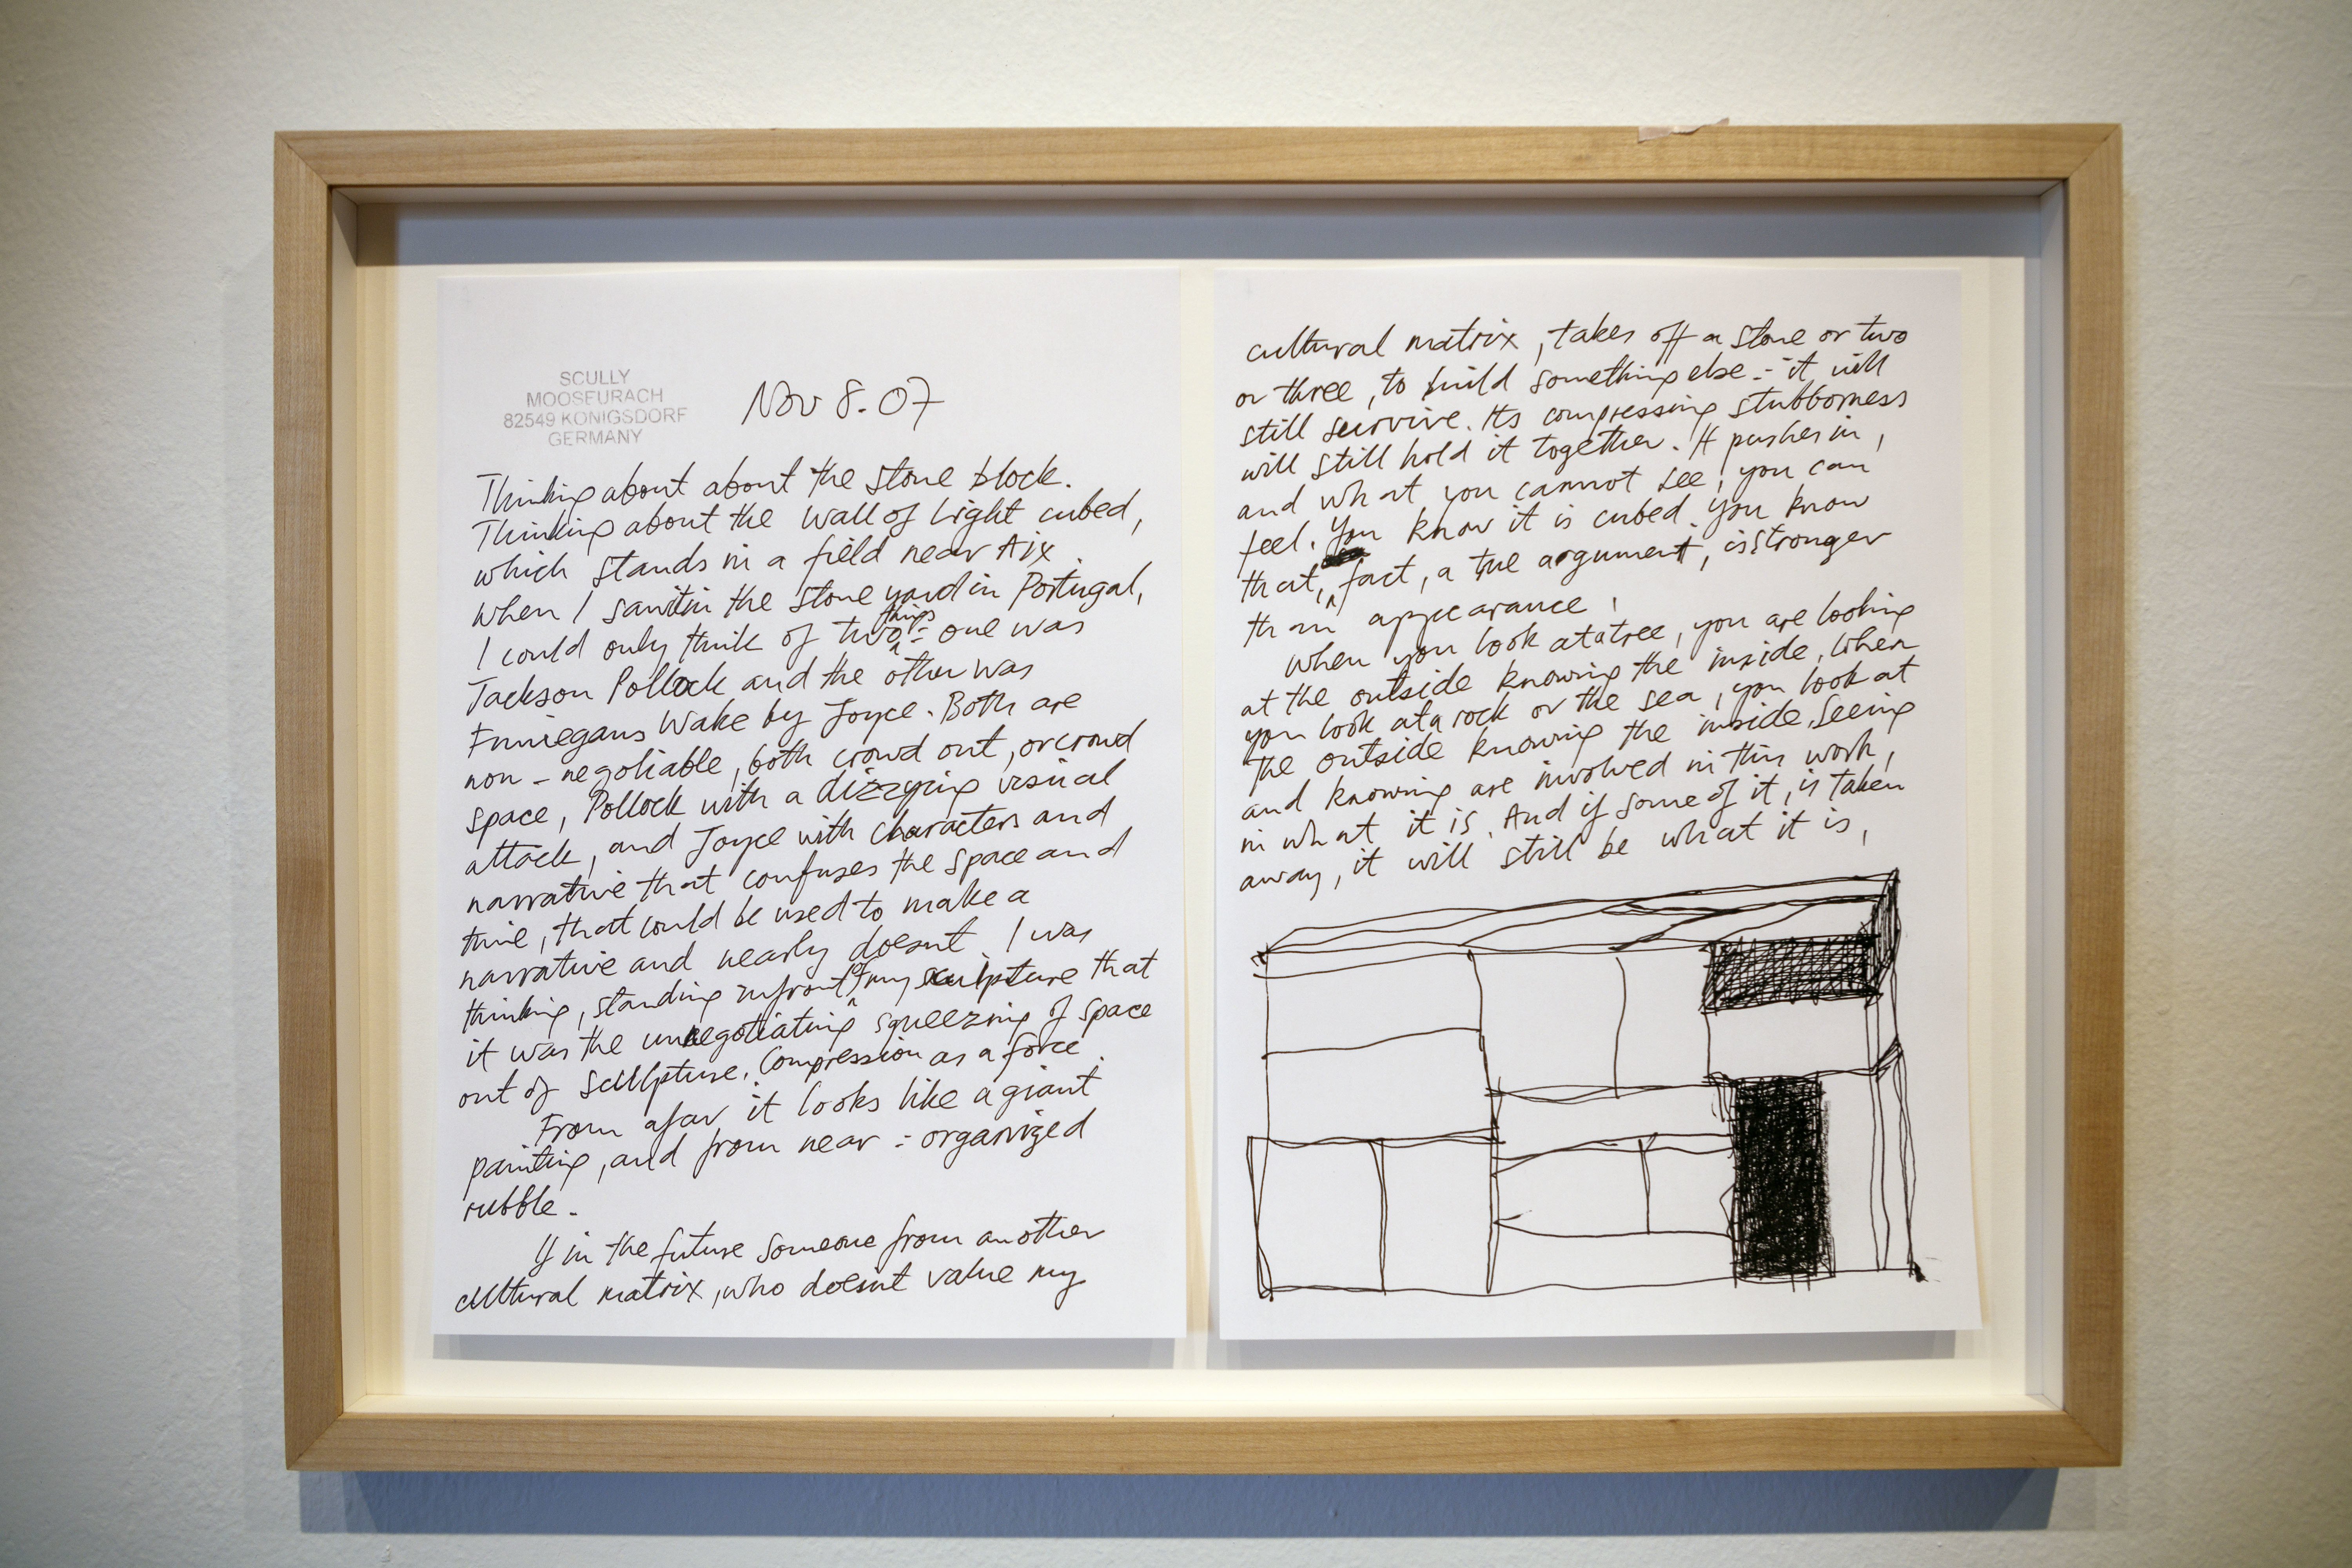 SCULLY
MOOSEURACH
82549 KONIGSDORF
GERMANY
Nov 8.07
Thinking about about the stone block.
Thinking about the Wall of Light cubed,
which stands in a field near Aix.
When I saw it in the stone yard in Portugal,
I could only think of two things:- one was
Jackson Pollock and the other was
Finnegans Wake by Joyce. Both are
non-negotiable, both crowd out, or crowd
space, Pollock with a dizzying visual
attack, and Joyce with characters and
narrative that confuses the space and
time, that could be used to make a
narrative and nearly doesnt. I was
thinking, standing infront of my sculpture that
it was the unnegotiating squeezing of space
out of sculpture. Compression as a force.
From afar it looks like a giant
painting, and from near :- organized
rubble.
If in the future someone from another
cultural matrix, who doesnt value my
cultural matrix, takes off a stone or two
or three, to build something else :- it will
still survive. Its compressing stubborness
will still hold it together. It pushes in,
and what you cannot see, you can
feel. You know it is cubed. You know
that, fact, a true argument, is stronger
than appearance.
When you look at a tree, you are looking
at the outside knowing the inside. When
you look at a rock or the sea, you look at
the outside knowing the inside. Seeing
and knowing are involved in this work,
in what it is. And if some of it, is taken
away, it will still be what it is.